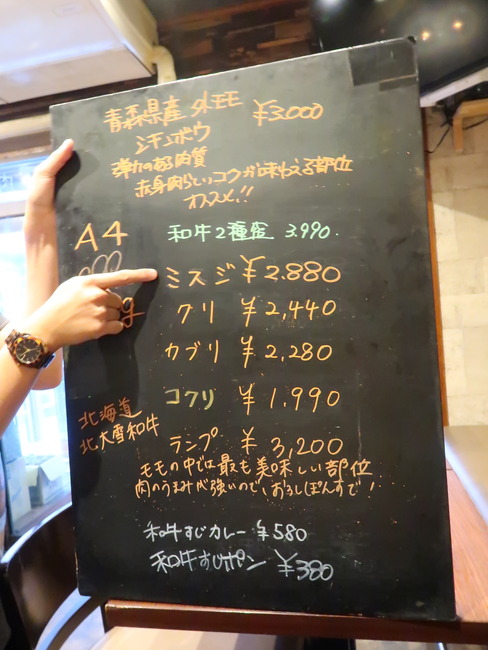 青森県産 外モモ ¥3.000
シキンボウ
弾力のある肉質
赤身肉らしいコクが味わえる部位
オススメ!!
A4
和牛2種盛 3.990.
ミスジ ¥2.880
g
クリ ¥2,440
カブリ ¥2,280
コクリ ¥1,990
北海道
北大雪和牛
ランプ ¥3,200
モモの中では最も美味しい部位
肉のうまみが強いので、おろしぽんずで!
和牛すじカレー ¥580
和牛すじポン ¥380